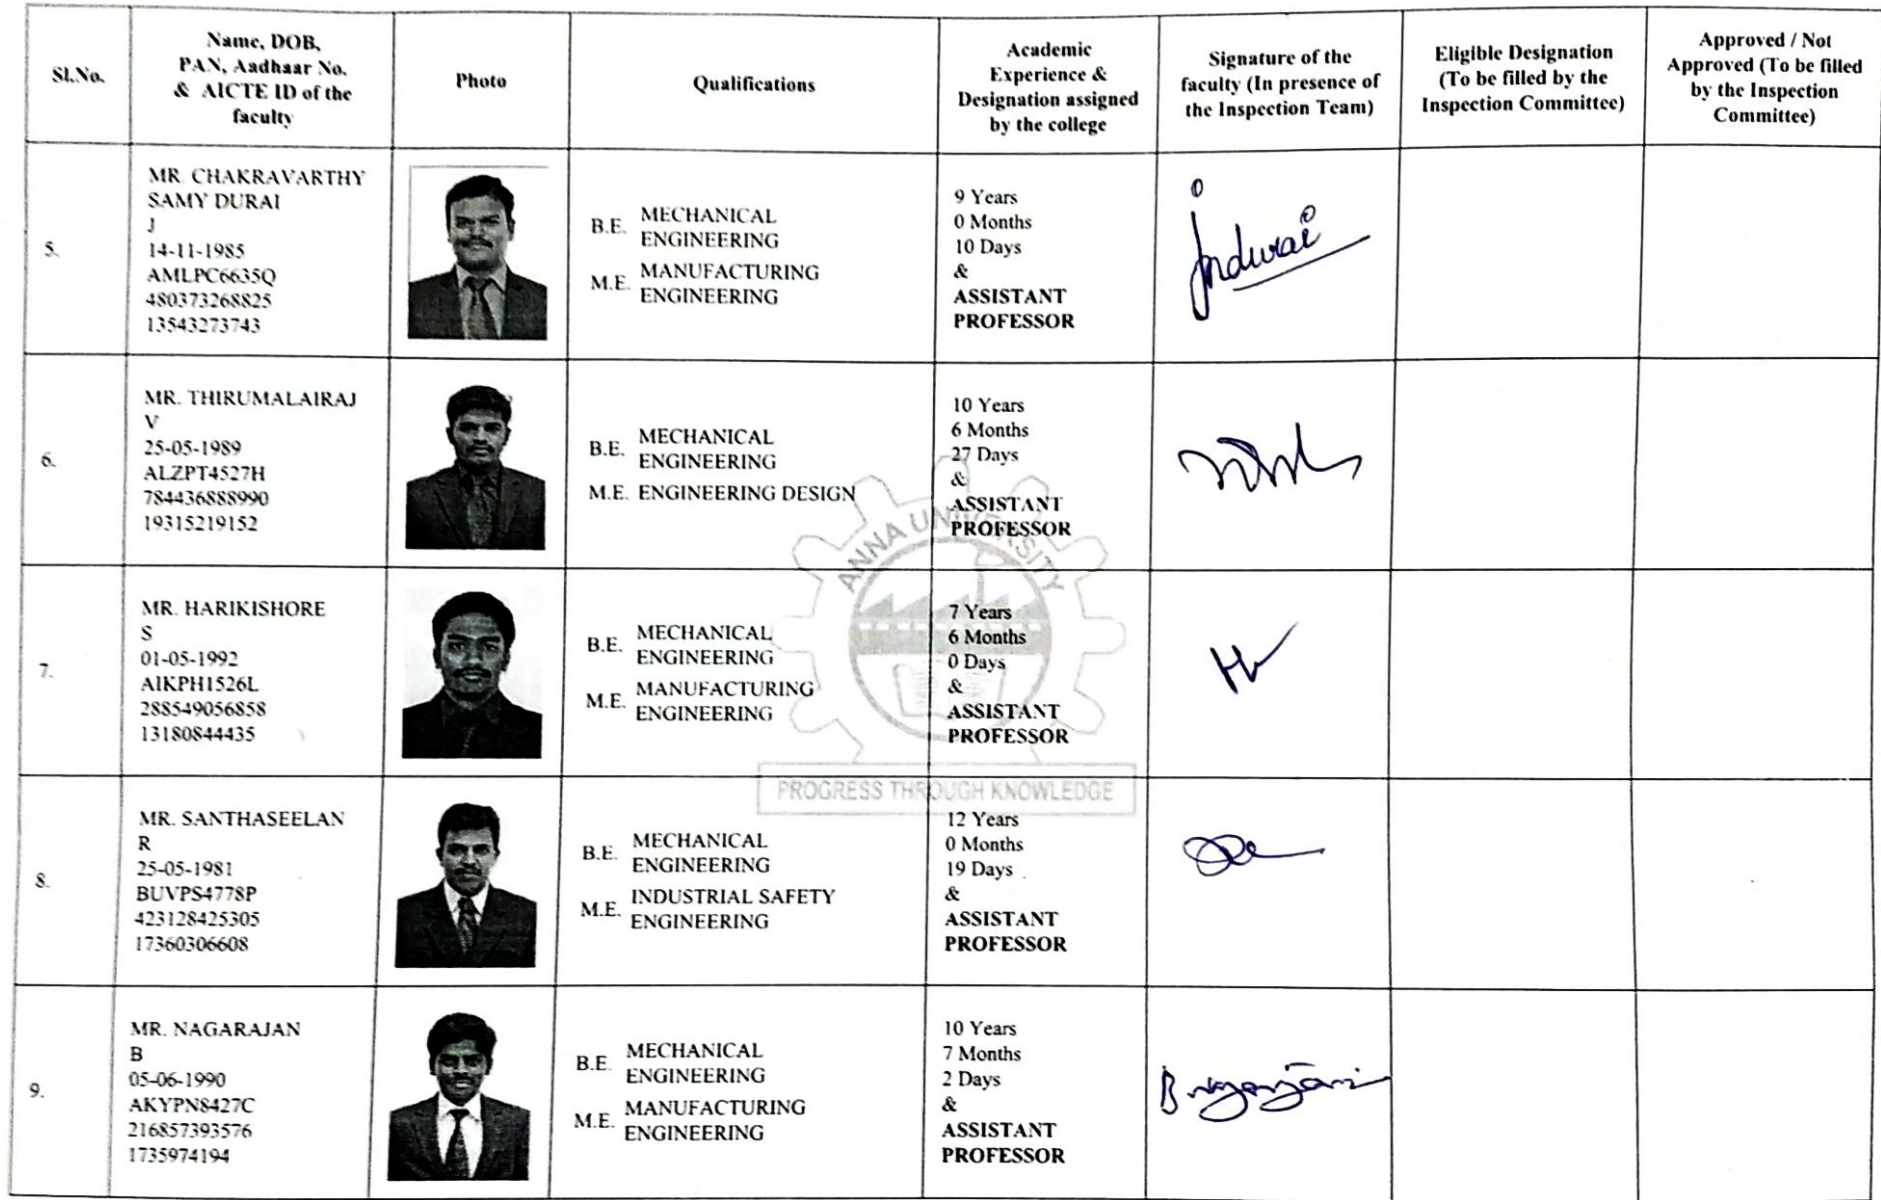 Sl.No.
Name, DOB,
PAN, Aadhaar No.
& AICTE ID of the
faculty
Photo
Qualifications
Academic
Experience &
Designation assigned
by the college
Signature of the
faculty (In presence of
the Inspection Team)
Eligible Designation
(To be filled by the
Inspection Committee)
Approved / Not
Approved (To be filled
by the Inspection
Committee)
5.
MR. CHAKRAVARTHY
SAMY DURAI
J
14-11-1985
AMLPC6635Q
480373268825
13543273743
B.E. MECHANICAL
ENGINEERING
M.E. MANUFACTURING
ENGINEERING
9 Years
0 Months
10 Days
&
ASSISTANT
PROFESSOR
6.
MR. THIRUMALAIRAJ
V
25-05-1989
ALZPT4527H
784436888990
19315219152
B.E. MECHANICAL
ENGINEERING
M.E. ENGINEERING DESIGN
10 Years
6 Months
27 Days
&
ASSISTANT
PROFESSOR
ANNA UNIVERSITY
7.
MR. HARIKISHORE
S
01-05-1992
AIKPH1526L
288549056858
13180844435
B.E. MECHANICAL
ENGINEERING
M.E. MANUFACTURING
ENGINEERING
7 Years
6 Months
0 Days
&
ASSISTANT
PROFESSOR
PROGRESS THROUGH KNOWLEDGE
8.
MR. SANTHASEELAN
R
25-05-1981
BUVPS4778P
423128425305
17360306608
B.E. MECHANICAL
ENGINEERING
M.E. INDUSTRIAL SAFETY
ENGINEERING
12 Years
0 Months
19 Days
&
ASSISTANT
PROFESSOR
9.
MR. NAGARAJAN
B
05-06-1990
AKYPN8427C
216857393576
1735974194
B.E. MECHANICAL
ENGINEERING
M.E. MANUFACTURING
ENGINEERING
10 Years
7 Months
2 Days
&
ASSISTANT
PROFESSOR